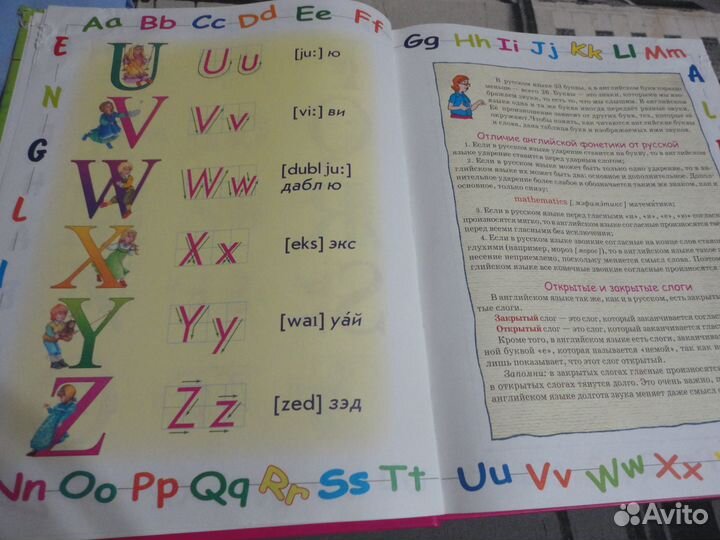 Aa Bb Cc Dd Ee Ff
Gg Hh Ii Jj Kk Ll Mm
E
N
G
L
U Uu [ju:] ю
V Vv [vi:] ви
W Ww [dubl ju:]
дабл ю
X Xx [eks] экс
Y Yy [waı] уáй
Z Zz [zed] зэд
В русском языке 33 буквы, а в английском букв гораздо
меньше — всего 26. Буквы — это знаки, которыми мы изо-
бражаем звуки, то есть то, что мы слышим. В английском
языке одна и та же буква иногда передаёт разные звуки.
Её произношение зависит от других букв, тех, которые её
окружают. Чтобы понять, как читаются английские буквы
и слова, дана таблица букв и изображаемых ими звуков.
Отличие английской фонетики от русской
1. Если в русском языке ударение ставится на букву, то в английском
языке ударение ставится перед ударным слогом;
2. Если в русском языке может быть только одно ударение, то в
английском языке их может быть два: основное и дополнительное. Дополн-
ительное ударение более слабое и обозначается таким же знаком, как и
основное, только снизу:
mathematics [ˌмэфимэ́тикс] математика;
3. Если в русском языке перед гласными «и», «я», «е», «ю» соглас
произносятся мягко, то в английском языке согласные произносятся
перед всеми гласными без исключения;
4. Если в русском языке звонкие согласные на конце слов станов
глухими (например, мороз [морос]), то в английском языке такое
несение неприемлемо, поскольку меняется смысл слова. Поэтом
глийском языке все конечные звонкие согласные произносятся
Открытые и закрытые слоги
В английском языке так же, как и в русском, есть закрыт
тые слоги.
Закрытый слог — это слог, который заканчивается соглас
Открытый слог — это слог, который заканчивается гласн
Кроме того, в английском языке есть слоги, заканчива
ной буквой «е», которая называется «немой», так как
лишь показывает, что этот слог открытый.
Запомни: в закрытых слогах гласные произносятся
в открытых слогах тянутся долго. Это очень важно, п
английском языке долгота звука меняет даже смысл с
A
L
Nn Oo Pp Qq Rr Ss Tt
Uu Vv Ww Xx
Avito